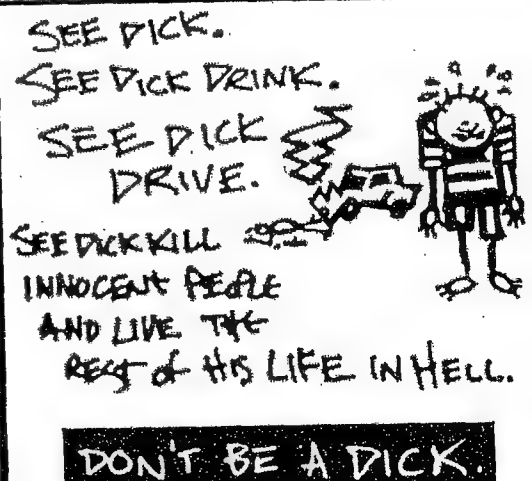 SEE DICK.
SEE DICK DRINK.
SEE DICK
DRIVE.
SEE DICK KILL
INNOCENT PEOPLE
AND LIVE THE
REST OF HIS LIFE IN HELL.
DON'T BE A DICK.